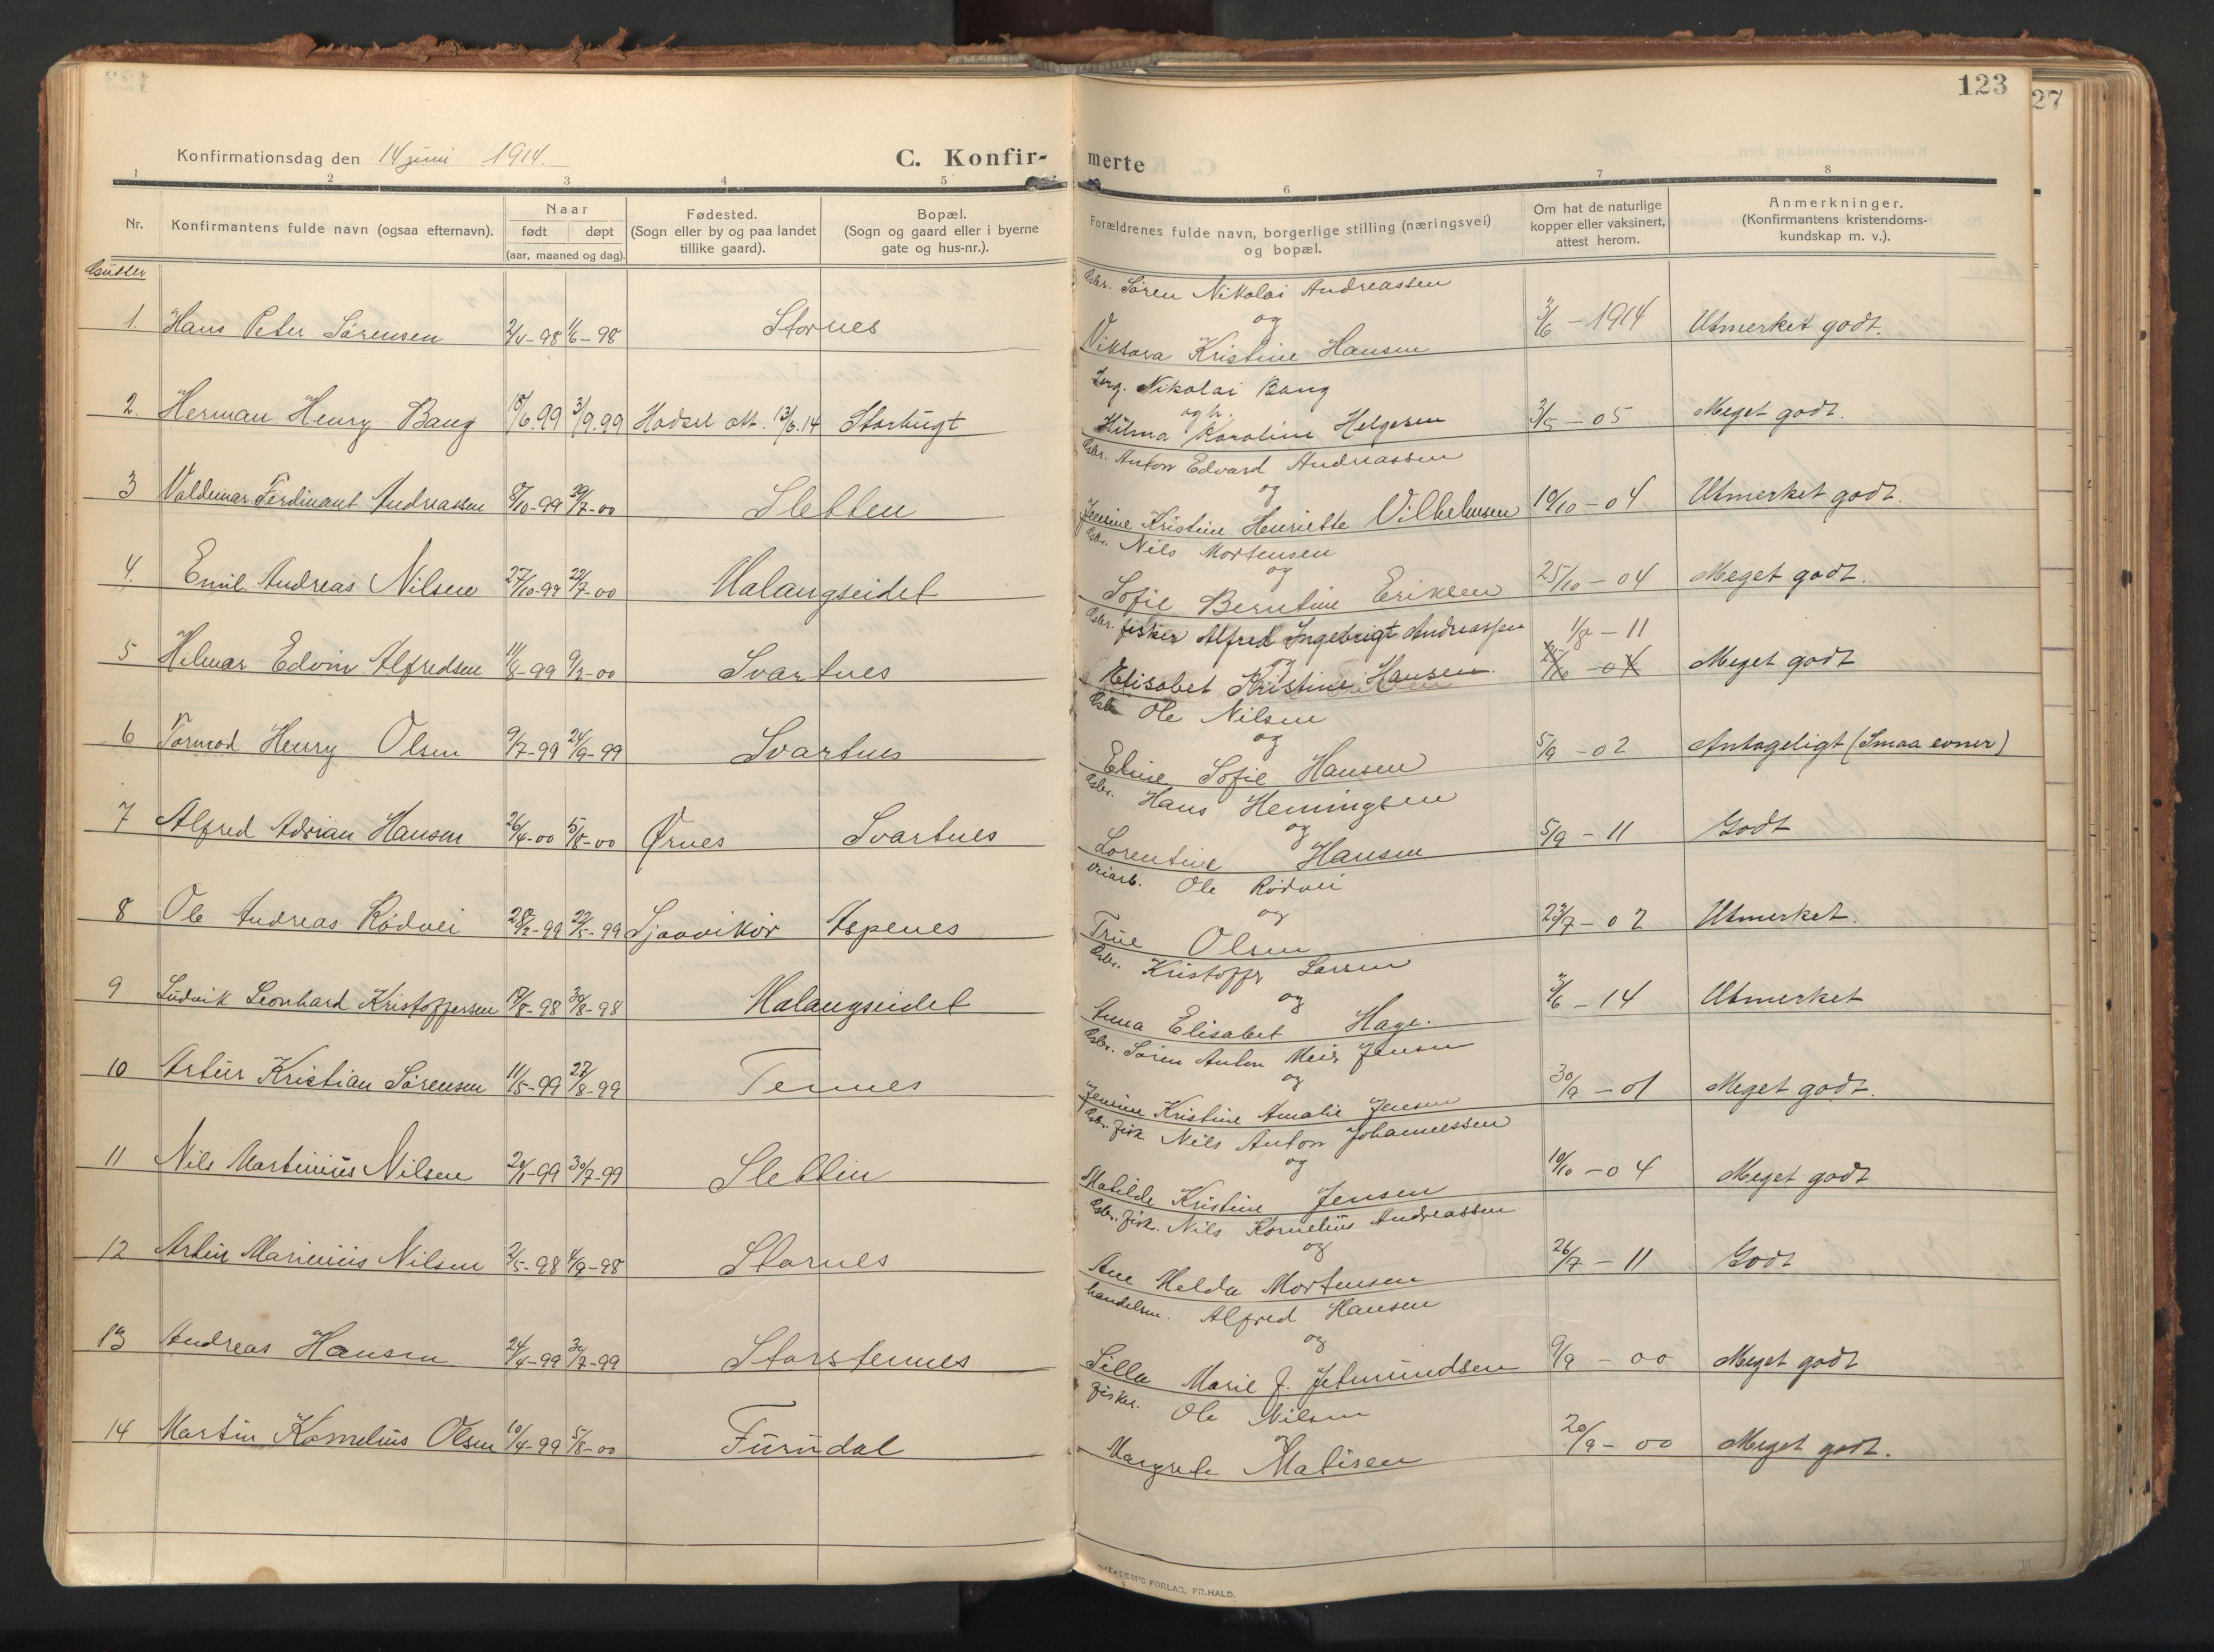 123
27
Konfirmationsdag den 14 juni 1914.
C. Konfir-merte
1 2 3 4 5 6 7 8
Nr.
Konfirmantens fulde navn (ogsaa efternavn).
Naar
født døpt
(aar, maaned og dag).
Fødested.
(Sogn eller by og paa landet
tillike gaard).
Bopæl.
(Sogn og gaard eller i byerne
gate og hus-nr.).
Forældrenes fulde navn, borgerlige stilling (næringsvei)
og bopæl.
Om hat de naturlige
kopper eller vaksinert,
attest herom.
Anmerkninger.
(Konfirmantens kristendoms-
kundskap m. v.).
Gutter
Gbr. Søren Nikolai Andreassen
og
1. Hans Peter Sørensen 2/4-98 1/6-98 Stornes 3/6-1914 Utmerket godt.
Viktora Kristine Hansen
Nikolai Bang
og h.
2. Herman Henry Bang 18/6.99 3/9.99 Hadsel att. 13/6.14 Storbugt 3/5-05 Meget godt.
Hilma Karoline Helgesen
Gbr. Anton Edvard Andreassen
og
3 Valdemar Ferdinant Andreassen 8/10-99 29/7-00 Sletten 10/10-04 Utmerket godt.
Jensine Kristine Henriette Vilhelmsen
Gbr. Nils Mortensen
og
4. Emil Andreas Nilsen 27/10-99 22/7-00 Malangseidet 25/10-04 Meget godt.
Sofie Berntine Eriksen
Gbr. fisker Alfred Ingebrigt Andreassen 1/8-11
og
5 Hilmar Edvin Alfredsen 11/8-99 9/2-00 Svartnes 25/10-04 Meget godt
Elisabet Kristine Hansen
Gbr Ole Nilsen
og
6 Tormod Henry Olsen 9/7-99 24/9-99 Svartnes 5/9-02 Antageligt (Smaa evner)
Eline Sofie Hansen
Gbr. Hans Hemingsen
og
7 Alfred Adrian Hansen 26/4-00 5/8-00 Ørnes Svartnes 5/9-11 Godt
Lorentine Hansen
veiarb. Ole Rødvei
og
8 Ole Andreas Rødvei 28/2-99 22/5-99 Sjaavikør Aspenes 23/7-02 Utmerket.
Trine Olsen
Gbr. Kristoffer Larsen
og
9 Ludvik Leonhard Kristoffersen 17/8-98 30/8-98 Malangseidet 3/6-14 Utmerket
Anna Elisabet Hage.
Gbr. Søren Anton Meier Jensen
og
10 Artur Kristian Sørensen 11/5-99 27/8-99 Tennes 30/9-01 Meget godt.
Jensine Kristine Amalie Jensen
Gbr. fisk. Nils Anton Johannessen
og
11 Nils Martinius Nilsen 20/1-99 30/7-99 Sletten 10/10-04 Meget godt
Matilde Kristine Jensen
Gbr. fisk. Nils Kornelius Andreassen
og
12 Artur Marinius Nilsen 2/5-98 4/9-98 Stornes 26/7-11 Godt
Ane Helda Mortensen
handelsm. Alfred Hansen
og
13 Andreas Hansen 24/4-99 30/7-99 Storstennes 9/9-00 Meget godt
Silla Marie J. Jetmundsen
fisker. Ole Nilsen
og
14 Martin Kornelius Olsen 10/4-99 5/8-00 Furudal 20/9-00 Meget godt.
Margrete Matisen
FORLAG, FR.HALD.